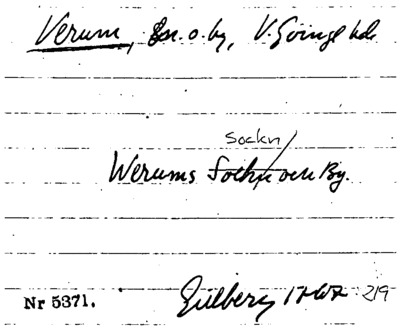 Verum, sn. o. by, V. Göinge hd.
Sockn
Werums Sockn och By.
Nr 5371. Gillberg 1767 219